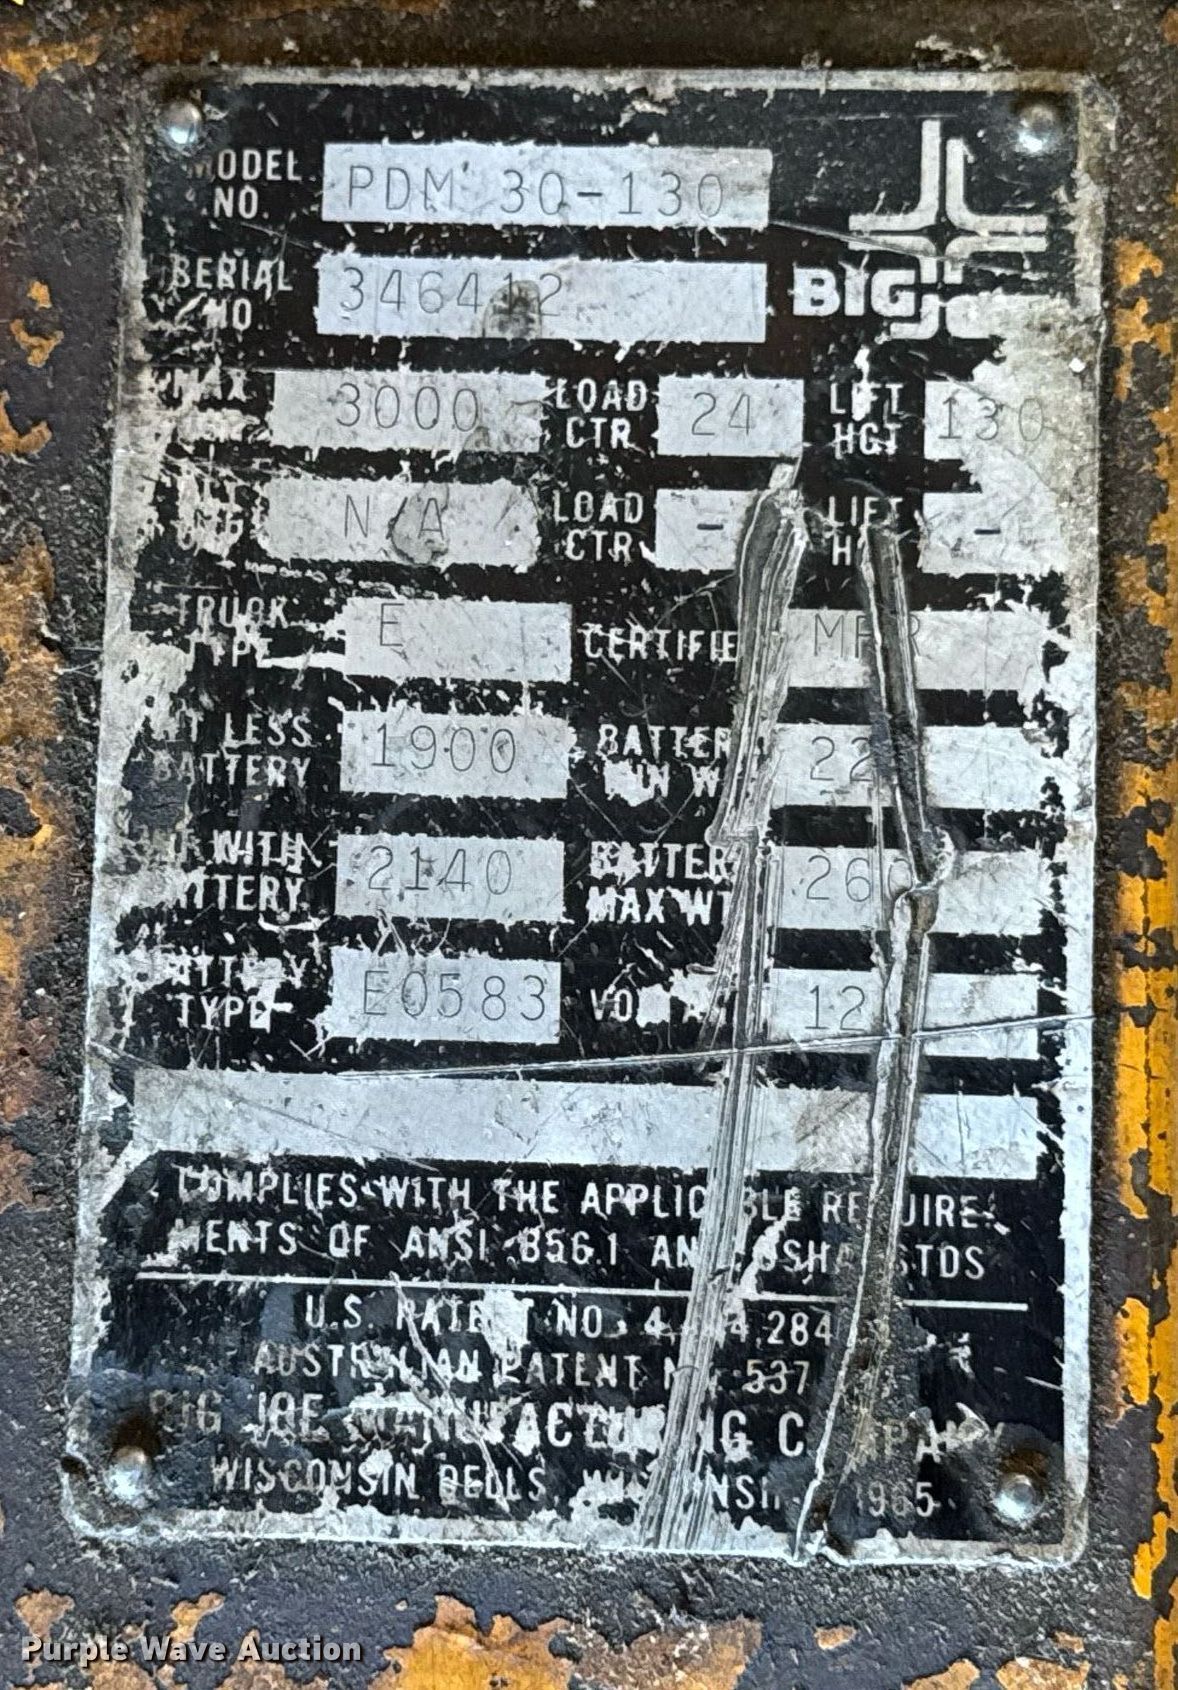 MODEL NO. PDM 30-130
BIG Joe
SERIAL NO. 346412
MAX 3000 LOAD CTR 24 LIFT HGT 130
N/A LOAD CTR - LIFT -
TRUCK TYPE E CERTIFIE
LESS BATTERY 1900 BATTER MIN W 22
WITH BATTERY 2140 BATTER MAX WT 260
BATTERY TYPE E0583 12
COMPLIES WITH THE APPLICABLE REQUIRE-
MENTS OF ANSI B56.1 AND OSHA STDS
U.S. PATENT NO. ,284
AUSTRALIAN PATENT 537
BIG JOE MANUFACTURING COMPANY
WISCONSIN DELLS, WISCONSIN
Purple Wave Auction